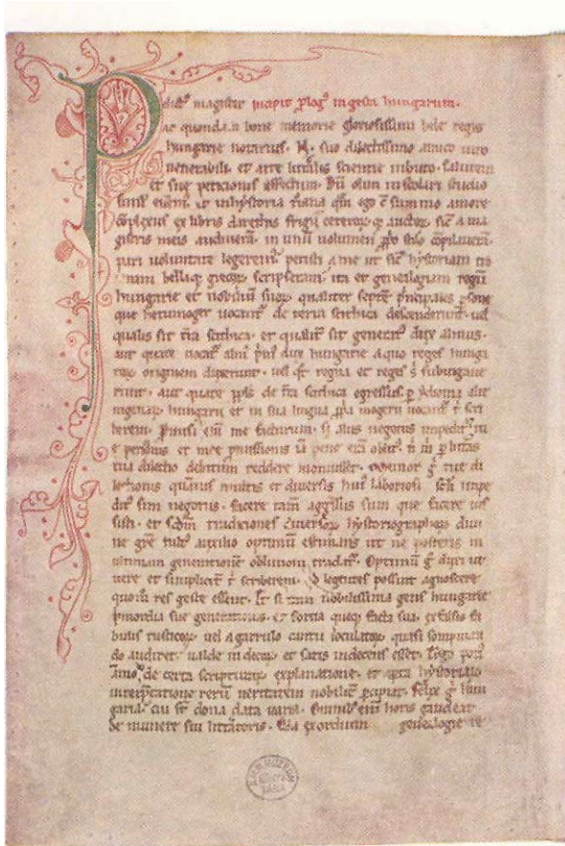 P dict᷒ magister incipit ꝓlog᷒ in gesta hungarum.
ac quondam bone memorie gloriosissimi bele regis
hungarie notarius. N. suo dilectissimo amico uiro
uenerabili. et arte litt̄alis scientie inbuto. salutem
et sue peticionis effectum. Dū olim in scolari studio
simul eēm᷒. et in hystoria t̄iana q̄m ego cū summo amore
cōplexus ex libris daretis frigii ceteroꝝ q᷒ auctoꝝ sic̄ a ma
gistris meis audiuerā. in unū uolumen ꝓp̄o stilo cōpilauerā.
pari uoluntate legerem᷒. petisti a me ut sic̄ hystoriam tro
ianam bellaq᷒ grecoꝝ scripseram. ita et genealogiam regū
hungarie et nobiliū suoꝝ qualiter septē p̄ncipales ꝑsone
que hetumoger uocant᷒. de terra scithica descenderunt. uel
qualis sit t̄ra scithica. et qualit̄ sit generat᷒ dux almus.
aut quare uocat᷒ alm᷒ prim᷒ dux hungarie a quo reges hunga
roꝝ originem duxerunt. uel q̄t regna et reges s̄ subiugaue
runt. aut quare ppl̄s de t̄ra scithica egressus ꝑ ydioma alie
nigenaꝝ hungarii et in sua lingua ꝓp̄a mogerii uocant᷒ t̄ scri
berem. Promisi eni me facturum. s᷒ aliis negotiis impedit᷒. tu
e peticionis et mee ꝓmissionis iā pene eram oblit᷒. n̄ m̄ ꝑ litt̄as
tua dilectio debitum reddere monuisset. Memor g᷒ tue di
lectionis quāuis multis et diuersis hui᷒ laboriosi sc̄li impe
dit᷒ sim negotiis. facere tam̄ aggressus sum que facere ius
sisti. et scd̄m traditiones diuersoꝝ hystoriographoꝝ diui
ne gr̄e fult᷒ auxilio optimum estimans ut ne posteris in
ultimam generationē obliuioni tradat᷒. Optimum g᷒ duxi ut
uere et simplicit̄ t̄ scriberem. q̄d legentes possint agnoscere
quom̄ res geste essent. Et si tam nobilissima gens hungarie
p̄mordia sue generationis. et fortia queq᷒ facta sua. ex falsis fa
bulis rusticoꝝ. uel a garrulo cantu ioculatoꝝ quasi sompnian
do audiret. ualde indecoꝝ et satis indecens esset. Ergo poti᷒
āmō de certa scripturaꝝ explanatione. et aꝑta hystoriaꝝ
int̄pretatione rerū ueritatem nobilit̄ ꝑcipiat. Felix g᷒ hun
garia. cui st̄ dona data uaria. Omnib᷒ enī horis gaudeat
de munere sui litt̄atoris. Quia exordium genealogie re